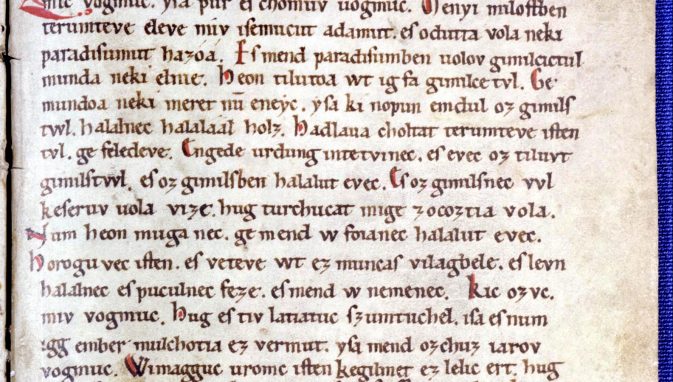 mic vogmuc. ysa pur es chomuv uogmuc. Menyi miloſtben
terumteve eleve miv iſemucut adamut. eſ odutta vola neki
paradiſumut hazoa. Eſ mend paradiſumben uolov gimilcictul
munda neki elnie. Heon tilutoa wt ig fa gimilce tvl. Ge
mundoa neki meret nū eneyc. yſa ki nopun emdul oz gimilſ
twl. halalnec halalaal holz. Hadlaua choltat terumteve iſten
tvl. ge feledeve. Engede urdung intetvinec. eſ evec oz tiluvt
gimilſtwl. eſ oz gimilſben halalut evec. Eſ oz gimilſnec vvl
keſeruv uola vize. hug turchucat mige zocoztia vola.
Num heon muga nec. ge mend w foianec halalut evec.
Horogu vec iſten. eſ veteve wt ez muncaſ vilagbele. eſ levn
halalnec eſ puculnec feze. eſ mend w nemenec. Kic ozvc.
miv vogmuc. Hug eſ tiv latiatuc szumtuchel. iſa eſ num
igg ember mulchotia ez vermut. yſa mend ozchuz iarov
vogmuc. Wimagguc uromc iſten kegilmet ez lelic ert. hug